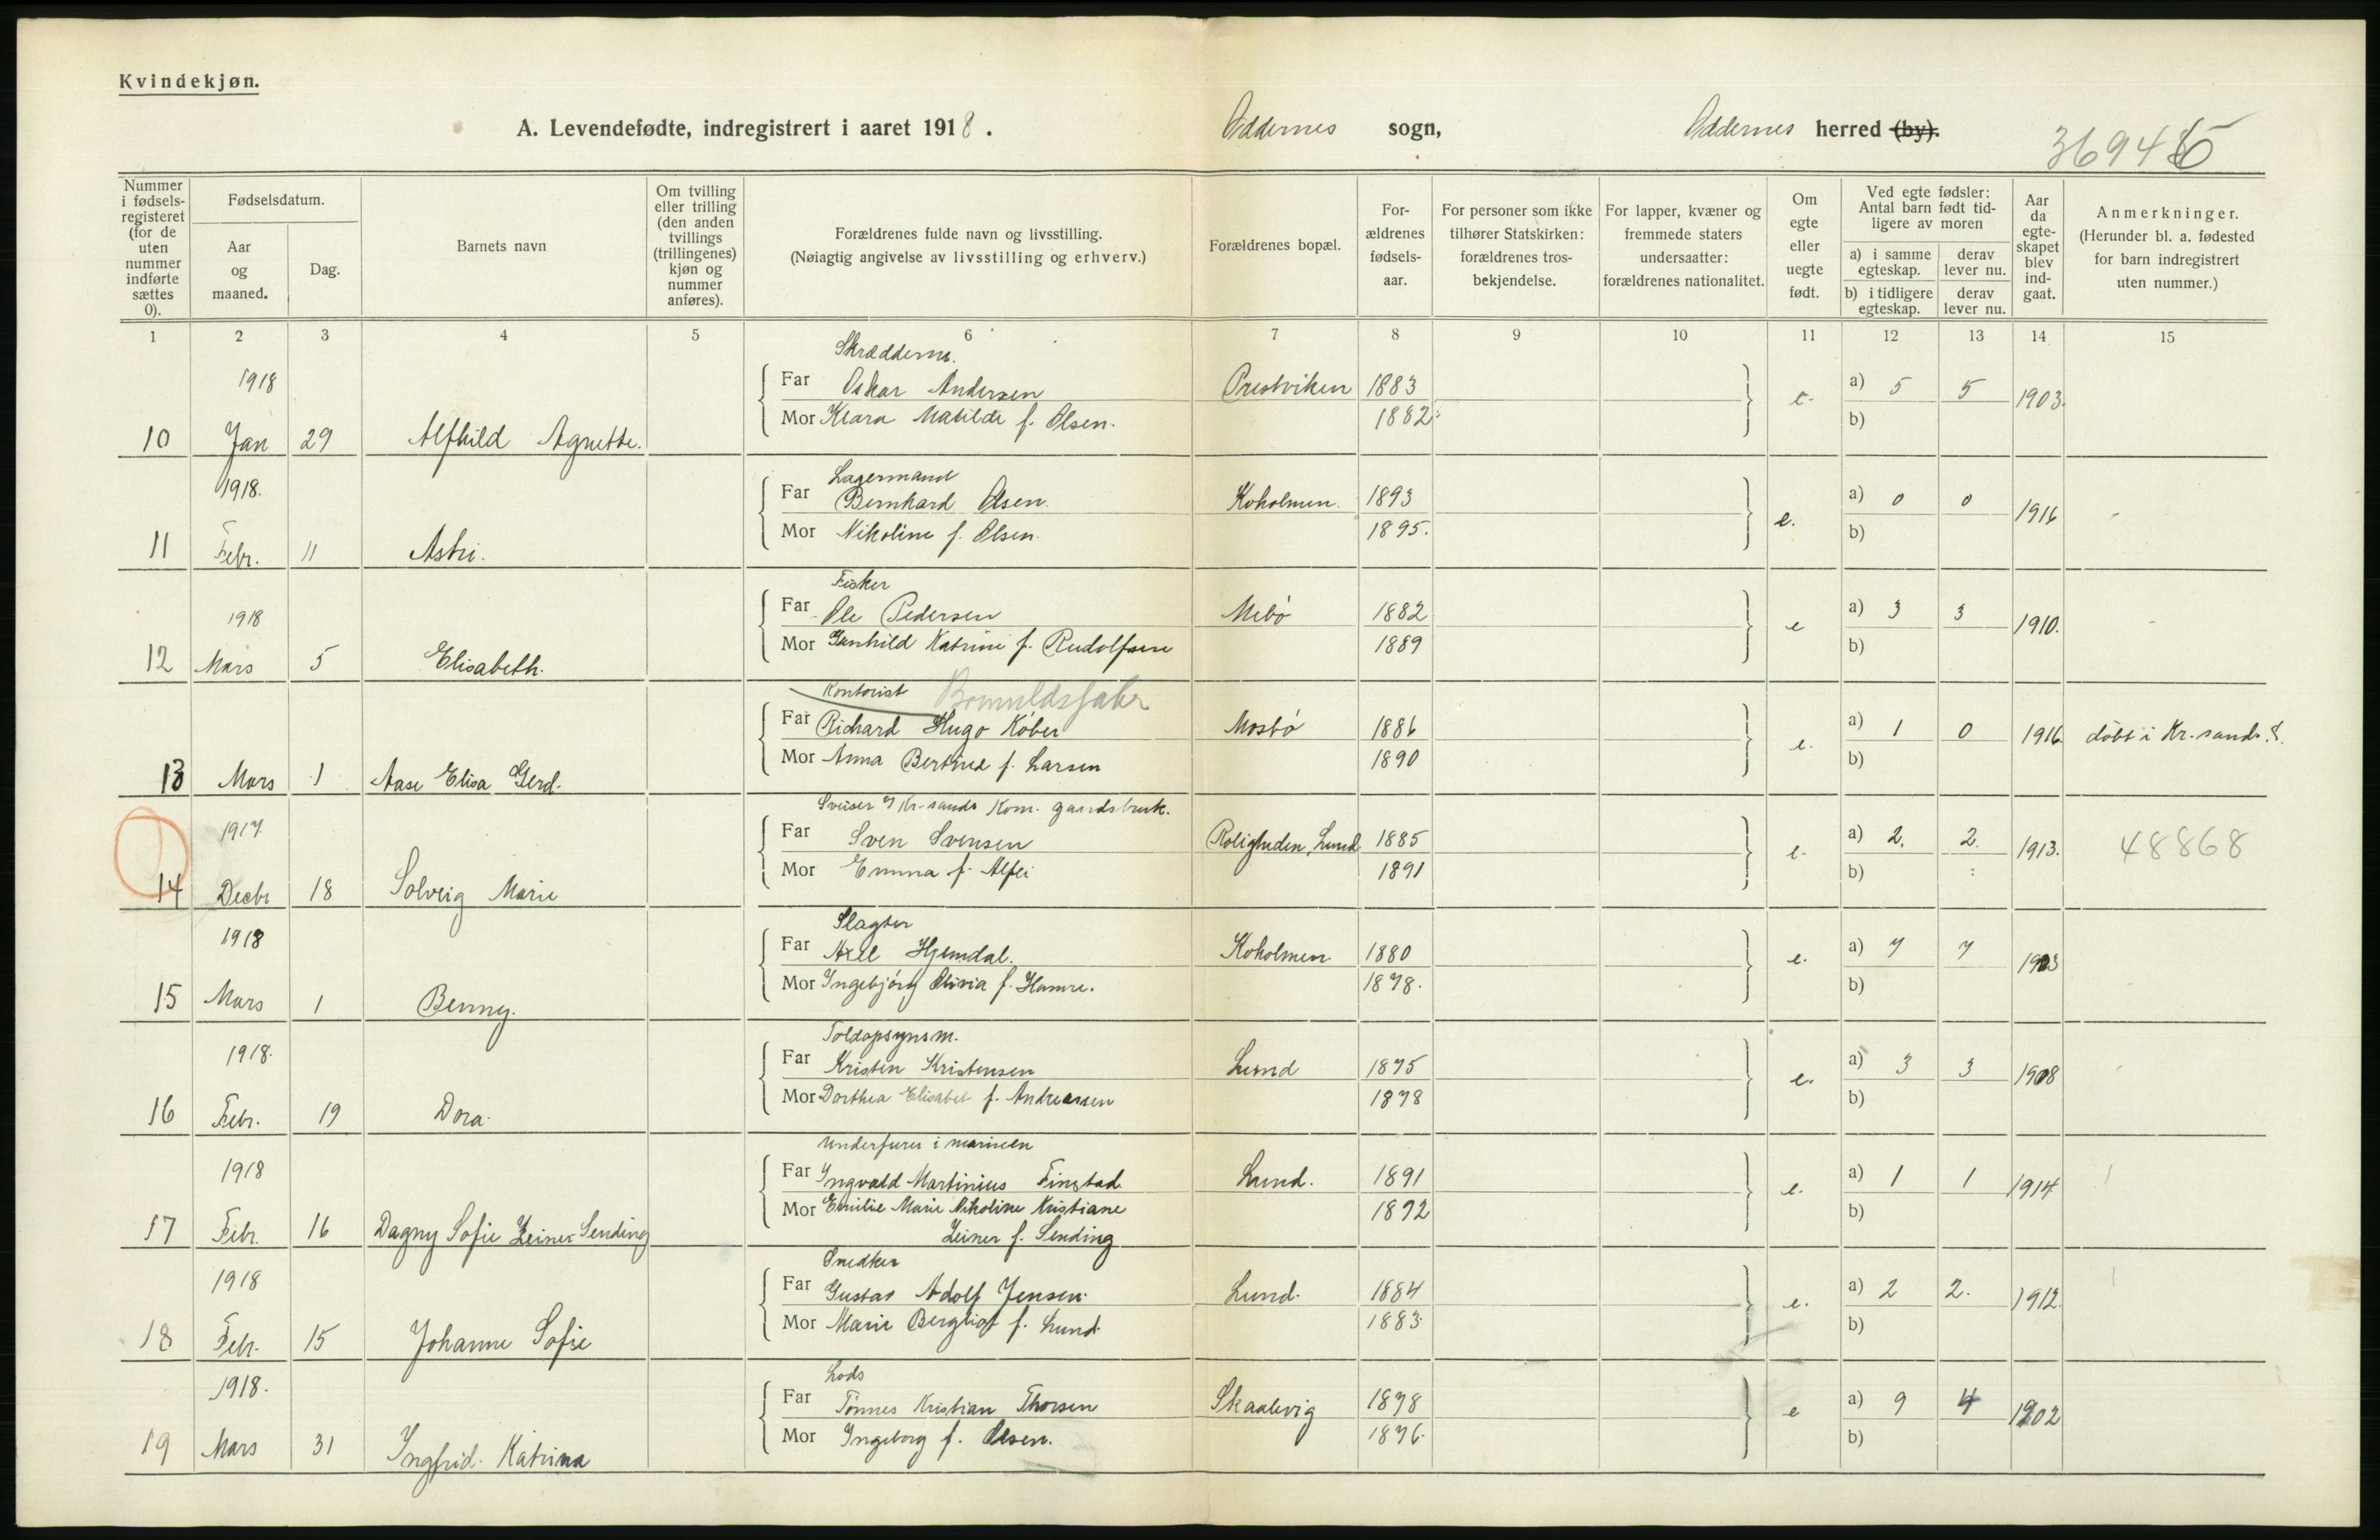 Kvindekjøn.
A. Levendefødte, indregistrert i aaret 1918. Oddernes sogn, Oddernes herred (by).
Nummer i fødsels-registeret (for de uten nummer indførte sættes 0).
Fødselsdatum.
Aar og maaned.
Dag.
Barnets navn
Om tvilling eller trilling (den anden tvillings (trillingenes) kjøn og nummer anføres).
Forældrenes fulde navn og livsstilling.
(Nøiagtig angivelse av livsstilling og erhverv.)
Forældrenes bopæl.
For-ældrenes fødsels-aar.
For personer som ikke tilhører Statskirken: forældrenes tros-bekjendelse.
For lapper, kvæner og fremmede staters undersaatter: forældrenes nationalitet.
Om egte eller uegte født.
Ved egte fødsler: Antal barn født tid-ligere av moren
a) i samme egteskap. derav lever nu.
b) i tidligere egteskap. derav lever nu.
Aar da egte-skapet blev ind-gaat.
Anmerkninger.
(Herunder bl. a. fødested for barn indregistrert uten nummer.)
1 2 3 4 5 6 7 8 9 10 11 12 13 14 15
Skrædderm.
1918 Far Oskar Andersen Prestviken 1883 a) 5 5 1903.
10 Jan 29 Alfhild Agnette. Mor Klara Matilde f. Olsen. 1882 e. b)
Lagermand
1918. Far Bernhard Olsen. Koholmen. 1893 a) 0 0 1916
11 Febr. 11 Astri. Mor Nikoline f. Olsen. 1895. e. b)
Fisker
1918 Far Ole Pedersen Mebö 1882 a) 3 3 1910.
12 Mars 5 Elisabeth. Mor Gunhild Katrine f. Rudolfsen 1889 e b)
Kontorist Bomuldsfabr
Far Richard Hugo Köber Mosbö 1886 a) 1 0 1916 döbt i Kr.sand. S.
13 Mars 1 Aase Elisa Gerd. Mor Anna Bertine f. Larsen 1890 e. b)
Sveiser Kr-sands Kom. gaardsbruk.
1917. Far Sven Svensen Roligheden, Lund 1885 a) 2. 2. 1913. 48868
14 Decbr 18 Solveig Marie Mor Emma f. Alfei 1891 e. b)
Slagter
1918 Far Axel Hjemdal. Koholmen. 1880 a) 7 7 1903
15 Mars 1 Benny. Mor Ingebjörg Olivia f. Hamre. 1878. e. b)
Toldopsynsm.
1918. Far Kristen Kristensen Lund 1875 a) 3 3 1908
16 Febr. 19 Dora. Mor Dorthea Elisabet f. Andreassen 1878 e. b)
Underfurer i marinen
1918 Far Ingvald Martinius Finstad Lund. 1891 a) 1 1 1914
17 Febr. 16 Dagny Sofie Zeiner Sending Mor Emilie Marie Nikoline Kristiane 1892 e. b)
Zeiner f. Sending
Snedker
1918 Far Gustav Adolf Jensen. Lund. 1884 a) 2 2. 1912
18 Febr. 15 Johanne Sofie Mor Marie Bergliot f. Lund. 1883. e. b)
Lods
1918. Far Tönnes Kristian Thorsen Skaalevig 1878 a) 9 4 1902
19 Mars 31 Ingfrid. Katrina Mor Ingeborg f. Olsen. 1876. e b)